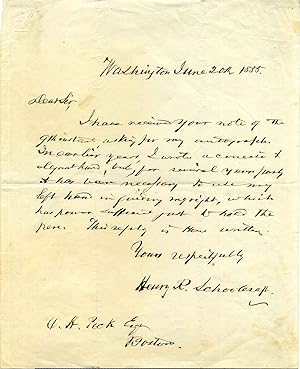 Washington June 20th 1855.
Dear Sir,
I have received your note of the
9th instant asking for my autograph.
In earlier years, I wrote a concise &
elegant hand, but, for several years past,
it has been necessary to use my
left hand in guiding my right, which
has power sufficient just to hold the
pen. This reply is thus written.
Yours respectfully
Henry R. Schoolcraft
Esq
Boston.